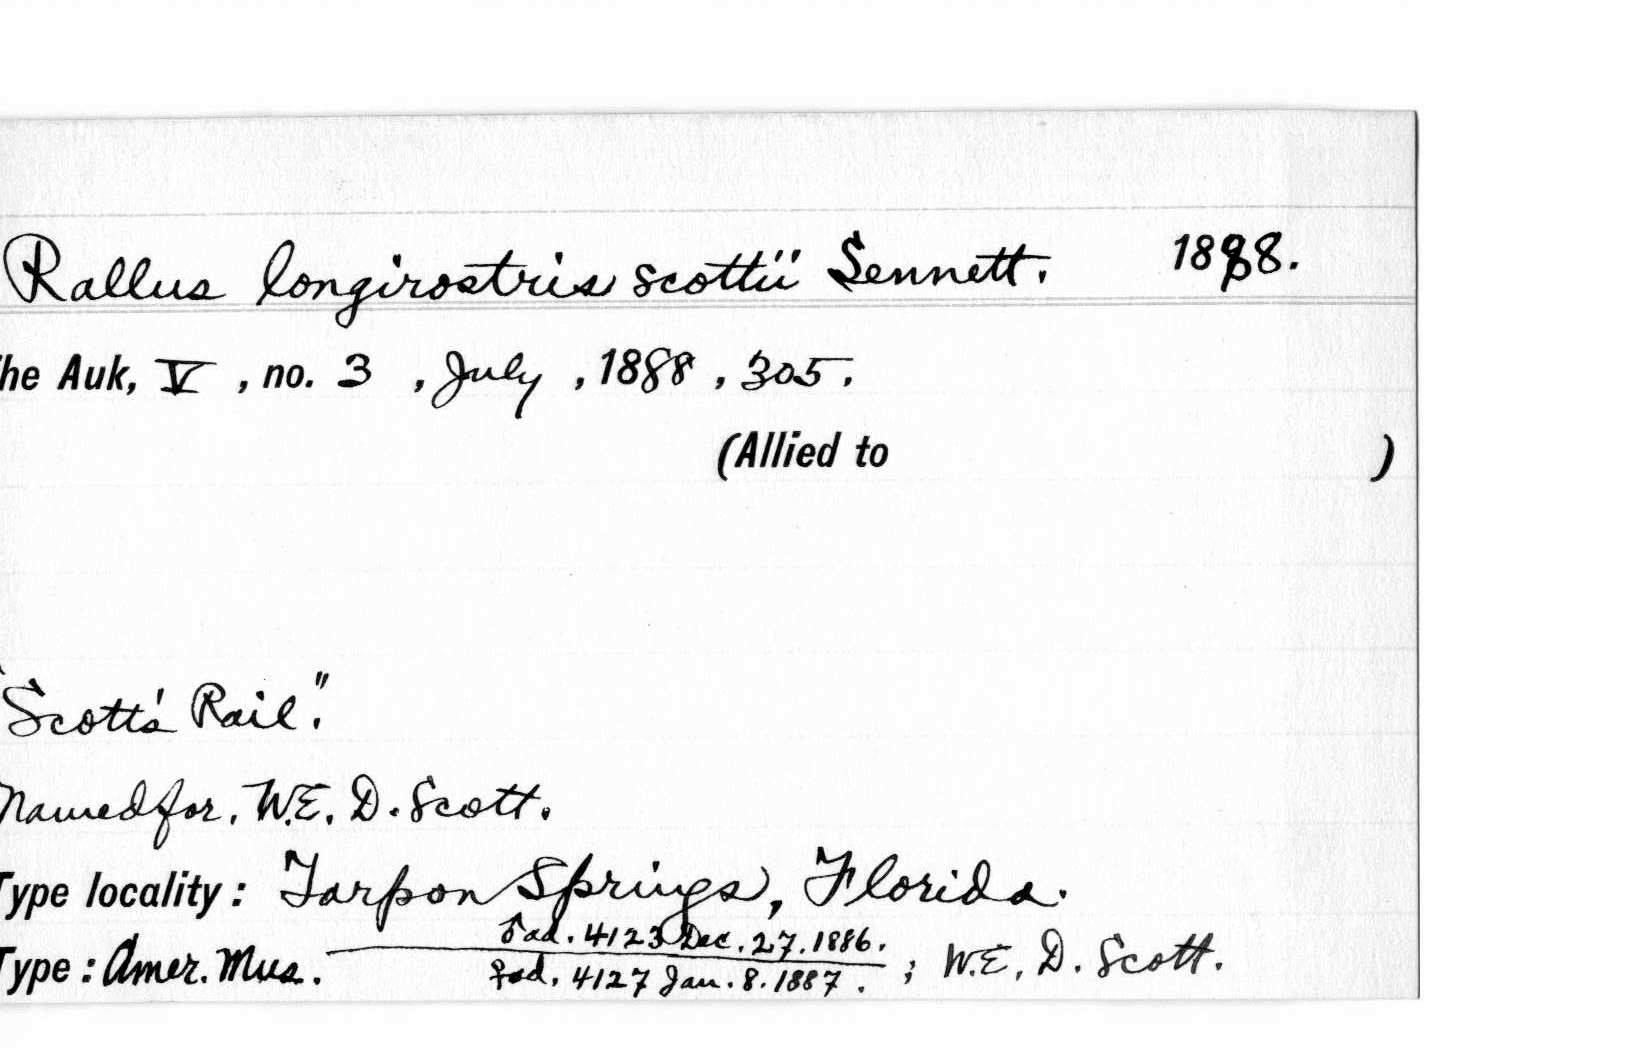 Rallus longirostris scottii Sennett. 1888.
he Auk, V, no. 3, July, 1888, 305.
(Allied to )
"Scott's Rail".
Named for, W.E.D. Scott.
Type locality: Tarpon Springs, Florida.
♂ad. 4123 Dec. 27. 1886.
Type: Amer. Mus. ; W.E.D. Scott.
♀ad. 4127 Jan. 8. 1887.